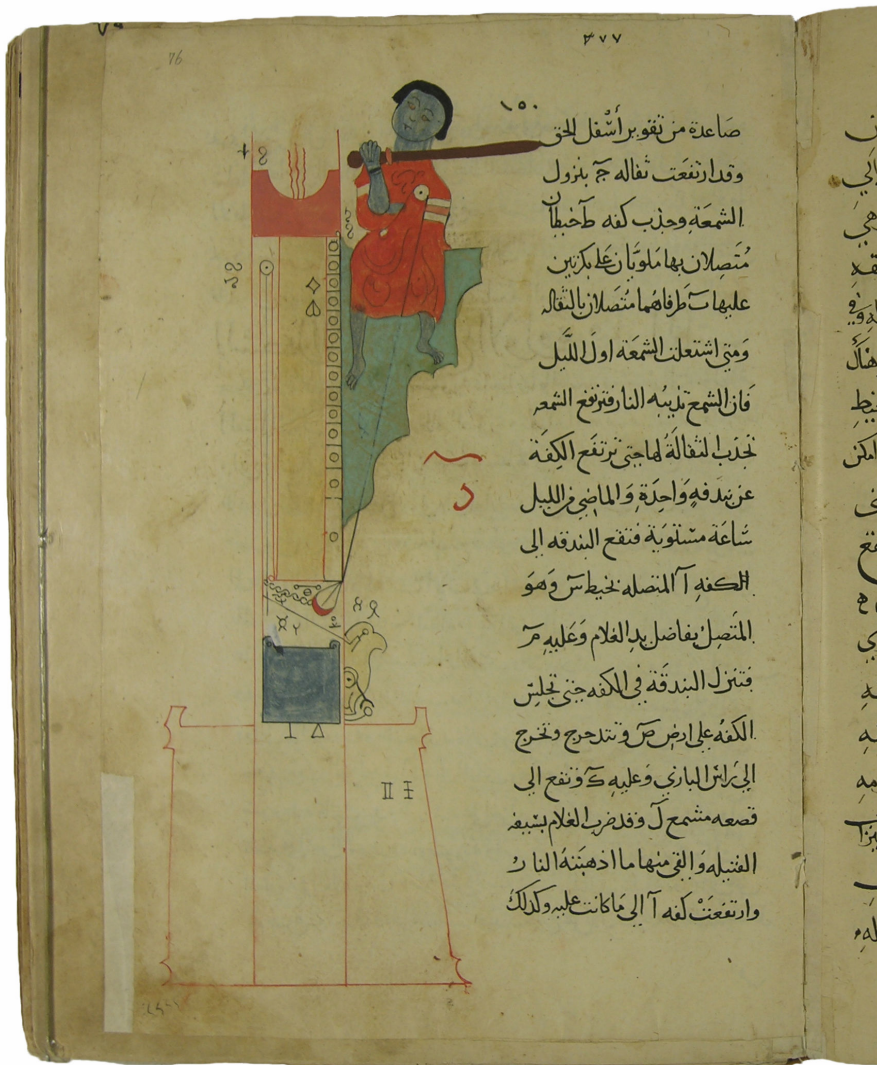 ٣٧٧
76
١٥٠
صاعدة من تقوير أسفل الحق
وقد ارتفعت ثقاله حم بنزول
الشمعة وجذب كفه ط خيطان
متصلان بها ملويان على بكرتين
عليهما ت طرفاهما متصلان بالثقاله
ومتى اشتعلت الشمعة اول الليل
فان الشمع تذيبه النار فترتفع الشمعه
تجذب الثقالة لها حتى ترتفع الكفة
عن بندقه واحدة والماضي من الليل
ساعة مستوية فتقع البندقه الى
الكفه آ المتصله بخيط س وهو
المتصل بفاضل يد الغلام وعليه م
فتنزل البندقة في الكفه حتى تجلس
الكفه على ارض ص وتتدحرج وتخرج
الى راس البازي وعليه ك وتقع الى
قصعه مشمع ل وقد ضرب الغلام بسيفه
الفتيله والقى منها ما اذهبته النار
وارتفعت كفه آ الى ما كانت عليه وكذلك